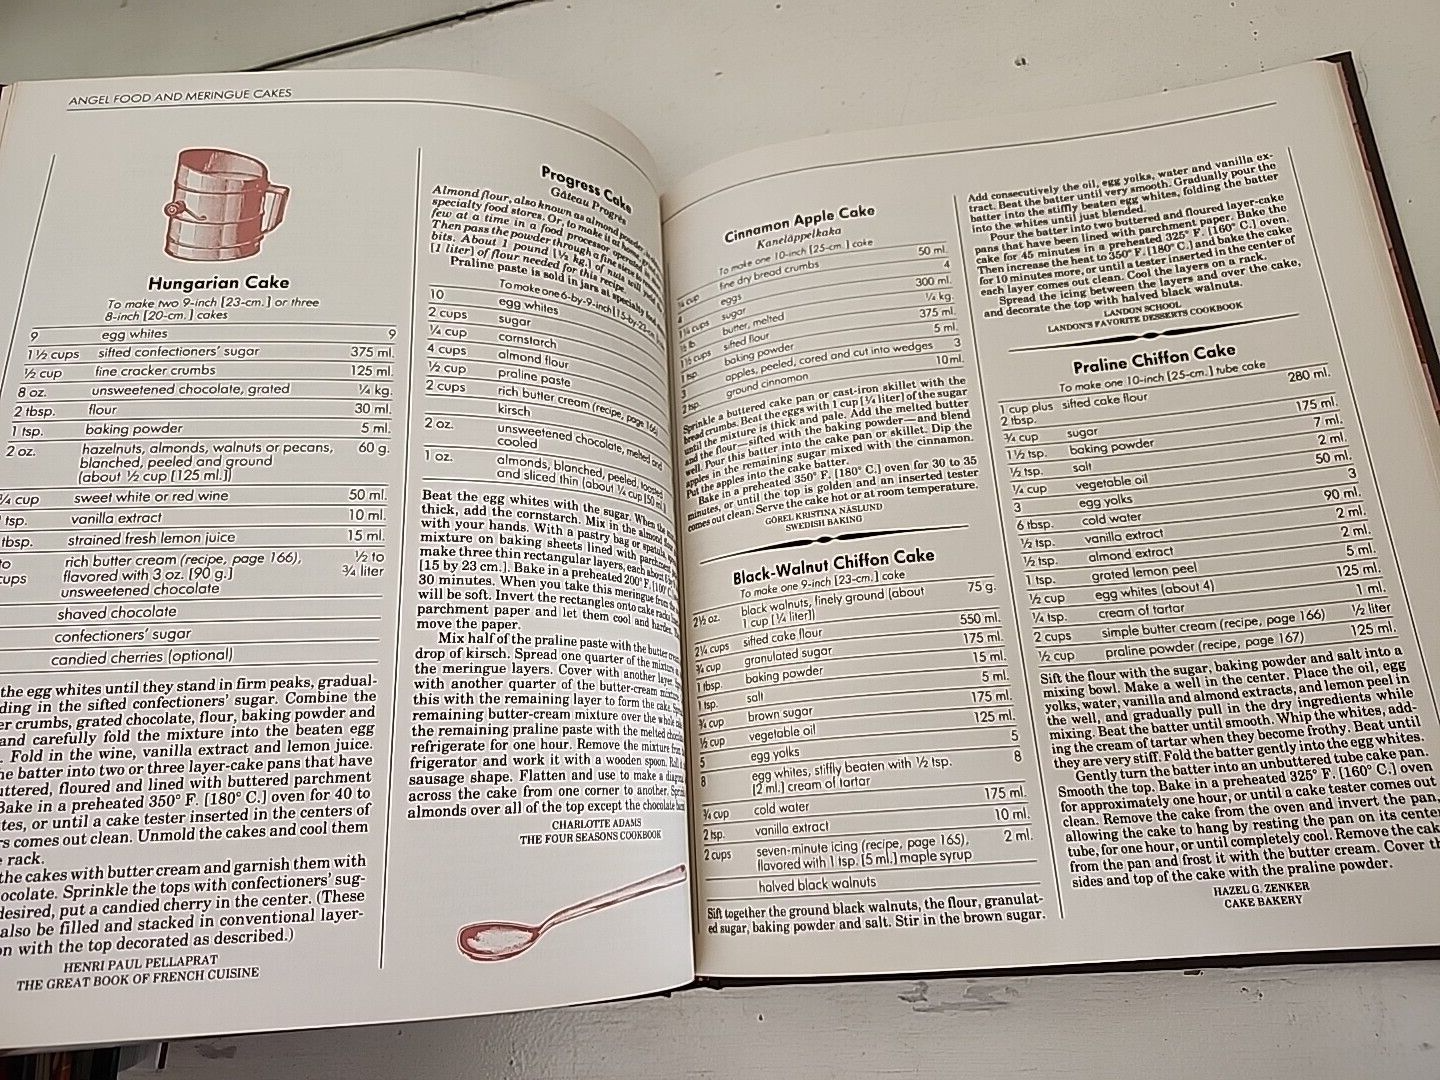 ANGEL FOOD AND MERINGUE CAKES
Hungarian Cake
To make two 9-inch [23-cm.] or three
8-inch [20-cm.] cakes
9 egg whites 9
1½ cups sifted confectioners' sugar 375 ml.
½ cup fine cracker crumbs 125 ml.
8 oz. unsweetened chocolate, grated ¼ kg.
2 tbsp. flour 30 ml.
1 tsp. baking powder 5 ml.
2 oz. hazelnuts, almonds, walnuts or pecans, 60 g.
blanched, peeled and ground
(about ½ cup [125 ml.])
¼ cup sweet white or red wine 50 ml.
tsp. vanilla extract 10 ml.
tbsp. strained fresh lemon juice 15 ml.
to rich butter cream (recipe, page 166), ½ to
cups flavored with 3 oz. [90 g.] ¾ liter
unsweetened chocolate
shaved chocolate
confectioners' sugar
candied cherries (optional)
the egg whites until they stand in firm peaks, gradual-
ding in the sifted confectioners' sugar. Combine the
er crumbs, grated chocolate, flour, baking powder and
and carefully fold the mixture into the beaten egg
. Fold in the wine, vanilla extract and lemon juice.
he batter into two or three layer-cake pans that have
uttered, floured and lined with buttered parchment
Bake in a preheated 350° F. [180° C.] oven for 40 to
tes, or until a cake tester inserted in the centers of
rs comes out clean. Unmold the cakes and cool them
rack.
the cakes with butter cream and garnish them with
ocolate. Sprinkle the tops with confectioners' sug-
desired, put a candied cherry in the center. (These
also be filled and stacked in conventional layer-
on with the top decorated as described.)
HENRI PAUL PELLAPRAT
THE GREAT BOOK OF FRENCH CUISINE
Progress Cake
Gâteau Progrès
Almond flour, also known as almond powder,
specialty food stores. Or, to make it at home,
few at a time in a food processor operated
Then pass the powder through a fine sieve to
bits. About 1 pound [½ kg.] of nuts will yield
[1 liter] of flour needed for this recipe.
Praline paste is sold in jars at specialty food
To make one 6-by-9-inch [15-by-23-cm.]
10 egg whites
2 cups sugar
¼ cup cornstarch
4 cups almond flour
½ cup praline paste
2 cups rich butter cream (recipe, page 166)
kirsch
2 oz. unsweetened chocolate, melted and
cooled
1 oz. almonds, blanched, peeled, toasted
and sliced thin (about ¼ cup [50 ml.])
Beat the egg whites with the sugar. When the
thick, add the cornstarch. Mix in the almond flour
with your hands. With a pastry bag or spatula,
mixture on baking sheets lined with parchment
make three thin rectangular layers, each about
[15 by 23 cm.]. Bake in a preheated 200° F. [100° C.]
30 minutes. When you take this meringue from the
will be soft. Invert the rectangles onto cake racks
parchment paper and let them cool and harden.
move the paper.
Mix half of the praline paste with the butter cream
drop of kirsch. Spread one quarter of the mixture
the meringue layers. Cover with another layer.
with another quarter of the butter-cream mixture
this with the remaining layer to form the cake.
remaining butter-cream mixture over the whole cake
the remaining praline paste with the melted
refrigerate for one hour. Remove the mixture from
frigerator and work it with a wooden spoon. Roll it
sausage shape. Flatten and use to make a diagonal
across the cake from one corner to another.
almonds over all of the top except the chocolate
CHARLOTTE ADAMS
THE FOUR SEASONS COOKBOOK
Cinnamon Apple Cake
Kaneläppelkaka
To make one 10-inch [25-cm.] cake
¼ cup fine dry bread crumbs 50 ml.
4 eggs 4
1¼ cups sugar 300 ml.
½ lb. butter, melted ¼ kg.
1½ cups sifted flour 375 ml.
1 tsp. baking powder 5 ml.
3 apples, peeled, cored and cut into wedges 3
2 tsp. ground cinnamon 10 ml.
Sprinkle a buttered cake pan or cast-iron skillet with the
bread crumbs. Beat the eggs with 1 cup [¼ liter] of the sugar
until the mixture is thick and pale. Add the melted butter
and the flour—sifted with the baking powder—and blend
well. Pour this batter into the cake pan or skillet. Dip the
apples in the remaining sugar mixed with the cinnamon.
Put the apples into the cake batter.
Bake in a preheated 350° F. [180° C.] oven for 30 to 35
minutes, or until the top is golden and an inserted tester
comes out clean. Serve the cake hot or at room temperature.
GÖREL KRISTINA NÄSLUND
SWEDISH BAKING
Black-Walnut Chiffon Cake
To make one 9-inch [23-cm.] cake
2½ oz. black walnuts, finely ground (about 75 g.
1 cup [¼ liter])
2¼ cups sifted cake flour 550 ml.
¾ cup granulated sugar 175 ml.
1 tbsp. baking powder 15 ml.
1 tsp. salt 5 ml.
¾ cup brown sugar 175 ml.
½ cup vegetable oil 125 ml.
5 egg yolks 5
8 egg whites, stiffly beaten with ½ tsp. 8
[2 ml.] cream of tartar
¾ cup cold water 175 ml.
2 tsp. vanilla extract 10 ml.
2 cups seven-minute icing (recipe, page 165), 2 ml.
flavored with 1 tsp. [5 ml.] maple syrup
halved black walnuts
Sift together the ground black walnuts, the flour, granulat-
ed sugar, baking powder and salt. Stir in the brown sugar.
Add consecutively the oil, egg yolks, water and vanilla ex-
tract. Beat the batter until very smooth. Gradually pour the
batter into the stiffly beaten egg whites, folding the batter
into the whites until just blended.
Pour the batter into two buttered and floured layer-cake
pans that have been lined with parchment paper. Bake the
cake for 45 minutes in a preheated 325° F. [160° C.] oven.
Then increase the heat to 350° F. [180° C.] and bake the cake
for 10 minutes more, or until a tester inserted in the center of
each layer comes out clean. Cool the layers on a rack.
Spread the icing between the layers and over the cake,
and decorate the top with halved black walnuts.
LANDON SCHOOL
LANDON'S FAVORITE DESSERTS COOKBOOK
Praline Chiffon Cake
To make one 10-inch [25-cm.] tube cake
1 cup plus sifted cake flour 280 ml.
2 tbsp.
¾ cup sugar 175 ml.
1½ tsp. baking powder 7 ml.
½ tsp. salt 2 ml.
¼ cup vegetable oil 50 ml.
3 egg yolks 3
6 tbsp. cold water 90 ml.
½ tsp. vanilla extract 2 ml.
½ tsp. almond extract 2 ml.
1 tsp. grated lemon peel 5 ml.
½ cup egg whites (about 4) 125 ml.
¼ tsp. cream of tartar 1 ml.
2 cups simple butter cream (recipe, page 166) ½ liter
½ cup praline powder (recipe, page 167) 125 ml.
Sift the flour with the sugar, baking powder and salt into a
mixing bowl. Make a well in the center. Place the oil, egg
yolks, water, vanilla and almond extracts, and lemon peel in
the well, and gradually pull in the dry ingredients while
mixing. Beat the batter until smooth. Whip the whites, add-
ing the cream of tartar when they become frothy. Beat until
they are very stiff. Fold the batter gently into the egg whites.
Gently turn the batter into an unbuttered tube cake pan.
Smooth the top. Bake in a preheated 325° F. [160° C.] oven
for approximately one hour, or until a cake tester comes out
clean. Remove the cake from the oven and invert the pan,
allowing the cake to hang by resting the pan on its center
tube, for one hour, or until completely cool. Remove the cake
from the pan and frost it with the butter cream. Cover the
sides and top of the cake with the praline powder.
HAZEL G. ZENKER
CAKE BAKERY